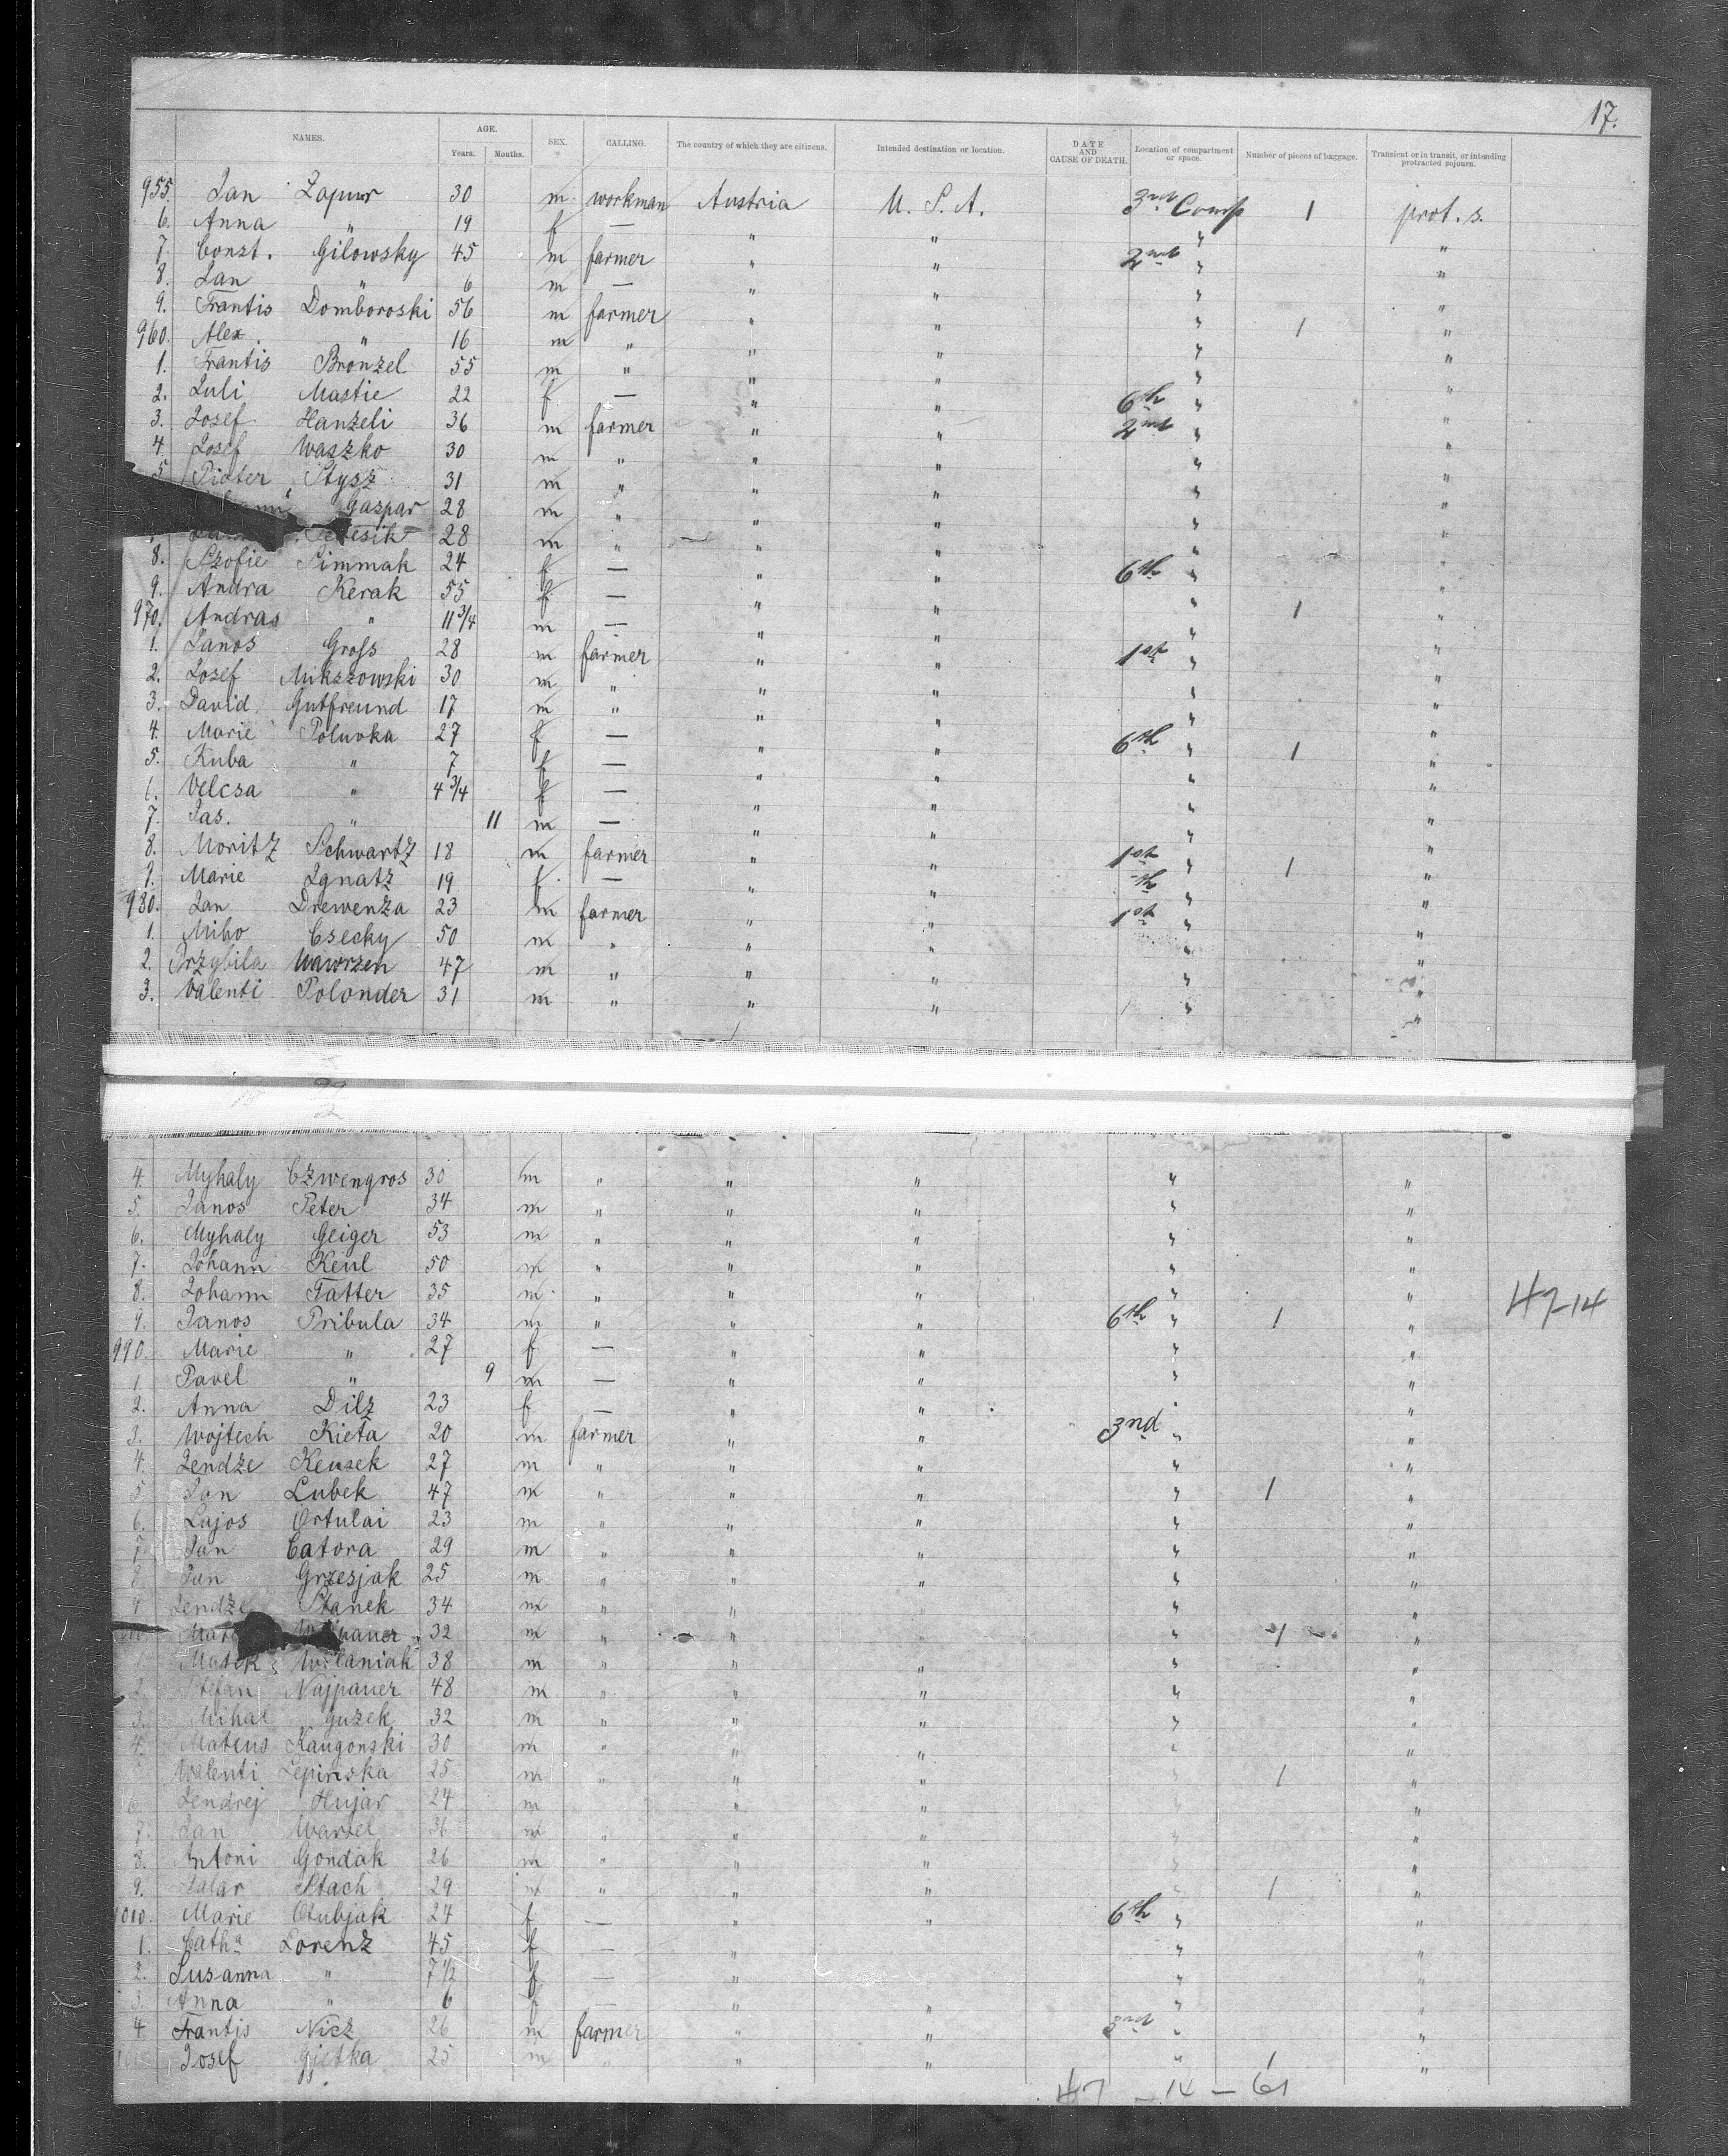 17.
NAMES. AGE. Years. Months. SEX. CALLING. The country of which they are citizens. Intended destination or location. DATE AND CAUSE OF DEATH. Location of compartment or space. Number of pieces of baggage. Transient or in transit, or intending protracted sojourn.
955. Jan Zapur 30 m. workman Austria U. S. A. 3rd Comp 1 prot. s.
6. Anna " 19 f — " " " "
7. Const. Gilowsky 45 m farmer " " 2nd " "
8. Jan " 6 m — " " " "
9. Frantis Domboroski 56 m farmer " " " 1 "
960. Alex. " 16 m " " " " "
1. Frantis Bronzel 55 m " " " " "
2. Juli Mastie 22 f — " " 6th " "
3. Josef Hanzeli 36 m farmer " " 2nd " "
4. Josef Waszko 30 m " " " " "
5 Pioter Stysz 31 m " " " " "
Gaspar 28 m " " " " "
28 m " " " " "
8. Szofie Simmak 24 f — " " 6th " "
9. Andra Kerak 55 f — " " " 1 "
970. Andras " 11 3/4 m — " " " "
1. Janos Gross 28 m farmer " " 1st " "
2. Josef Mikszowski 30 m " " " " "
3. David Gutfreund 17 m " " " " "
4. Marie Poluvka 27 f — " " 6th " 1 "
5. Kuba " 7 f — " " " "
6. Velcsa " 4 3/4 f — " " " "
7. Jas. " 11 m — " " " "
8. Moritz Schwartz 18 m farmer " " 1st " 1 "
9. Marie Ignatz 19 f. — " " th " "
980. Jan Drewenza 23 m farmer " " 1st " "
1. Miho Csecky 50 m " " " " "
2. Przybila Wawrzen 47 m " " " " "
3. Valenti Polonder 31 m " " " " "
4. Myhaly Czwengros 30 m " " " " "
5. Janos Peter 34 m " " " " "
6. Myhaly Geiger 53 m " " " " "
7. Johann Keul 50 m " " " " "
8. Johann Tatter 35 m. " " " " " 47-14
9. Janos Pribula 34 m " " " 6th " 1 "
990. Marie " 27 f — " " " "
1. Pavel " 9 m — " " " "
2. Anna Dilz 23 f — " " " "
3. Wojtech Kieta 20 m farmer " " 3nd " "
4. Jendze Keusek 27 m " " " " "
5 Jan Lubek 47 m " " " " 1 "
6. Lajos Ortulai 23 m " " " " "
7. Jan Catora 29 m " " " " "
8. Jan Grzesjak 25 m " " " " "
9 Jendze Stanek 34 m " " " "
32 m " " " 1 "
Masek 38 m " " " " "
2. Stefan Najpauer 48 m " " " " "
3. Mihal Guzek 32 m " " " " "
4. Mateus Kaugonski 30 m " " " " "
Walenti Lepinska 25 m " " " " 1 "
6. Jendrej Hujar 24 m " " " "
7. Jan Warzel 36 m " " " " "
8. Antoni Gondak 26 m " " " " "
9. Stach 29 m " " " " 1 "
1010. Marie Otubjak 24 f — " " 6th " "
1. Catha Lorenz 45 f — " " "
2. Susanna " 7 1/2 f — " " "
3. Anna " 6 f — " " " "
4 Frantis Nicz 26 m farmer " " 3rd " "
1015 Josef Gjetka 25 m " " " " 1 "
47 - 14 - 61